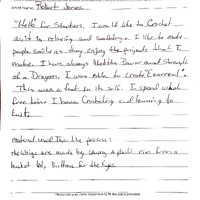 Artist Name: Robert Jones
"Hello" for Starters, I would like to Crochet
as it is relaxing and soothing. I like to make
people smile as they enjoy the projects that I
make. I have always liked the Power and Strength
of a Dragon, I was able to create "Emmerel".
This was a feat to its self. I spend what
free time I have Crocheting and learning to
knit.
Material used Thru the process:
the wings are made by using a plastic rim from a
bucket lid, Buttons for the Eyes